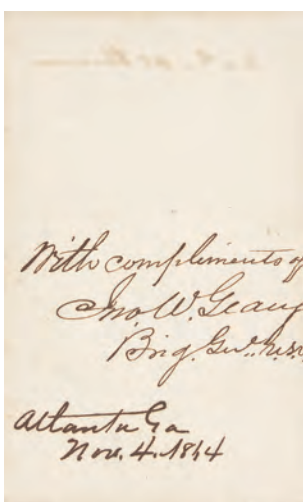 With compliments of
Jno. W. Geary
Brig. Genl. U.S.
Atlanta Ga
Nov. 4. 1864